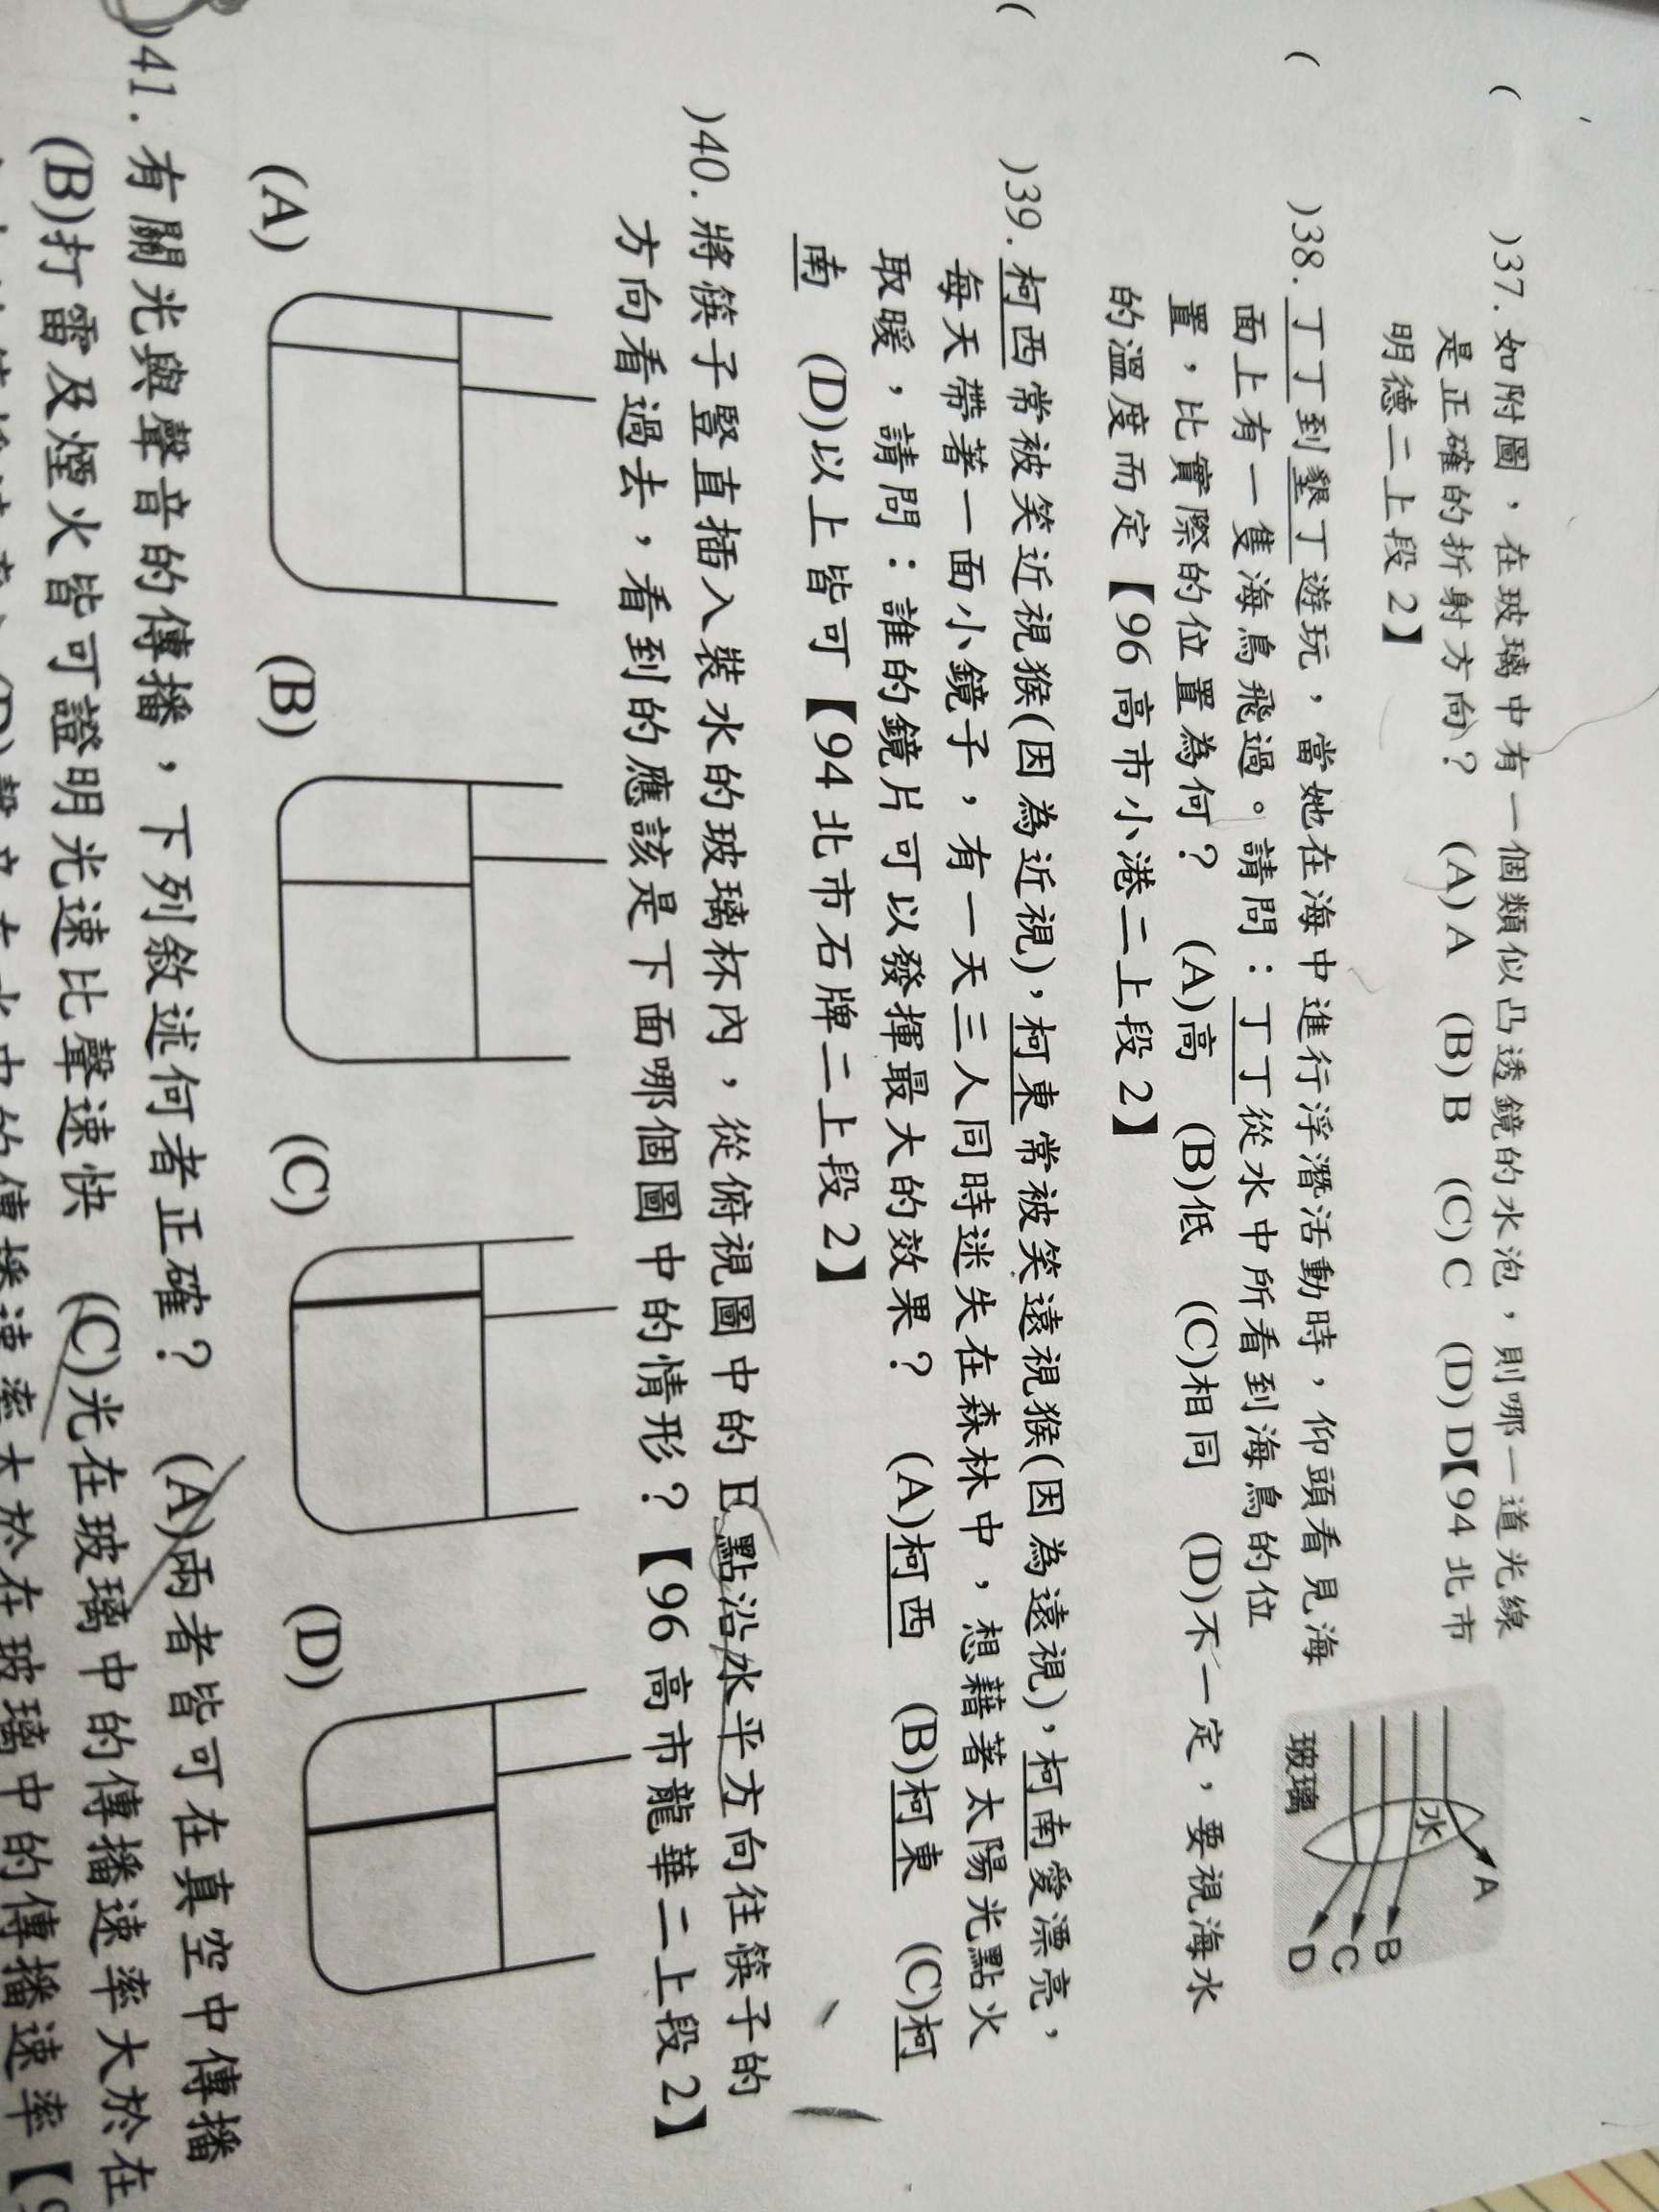 ( )37. 如附圖，在玻璃中有一個類似凸透鏡的水泡，則哪一道光線
是正確的折射方向？ (A) A (B) B (C) C (D) D【94 北市
明德二上段 2】
水
玻璃
A
B
C
D
( )38. 丁丁到墾丁遊玩，當她在海中進行浮潛活動時，仰頭看見海
面上有一隻海鳥飛過。請問：丁丁從水中所看到海鳥的位
置，比實際的位置為何？ (A)高 (B)低 (C)相同 (D)不一定，要視海水
的溫度而定【96 高市小港二上段 2】
( )39. 柯西常被笑近視猴(因為近視)，柯東常被笑遠視猴(因為遠視)，柯南愛漂亮，
每天帶著一面小鏡子，有一天三人同時迷失在森林中，想藉著太陽光點火
取暖，請問：誰的鏡片可以發揮最大的效果？ (A)柯西 (B)柯東 (C)柯
南 (D)以上皆可【94 北市石牌二上段 2】
)40. 將筷子豎直插入裝水的玻璃杯內，從俯視圖中的 E 點沿水平方向往筷子的
方向看過去，看到的應該是下面哪個圖中的情形？【96 高市龍華二上段 2】
(A) (B) (C) (D)
)41. 有關光與聲音的傳播，下列敘述何者正確？ (A)兩者皆可在真空中傳播
(B)打雷及煙火皆可證明光速比聲速快 (C)光在玻璃中的傳播速率大於在